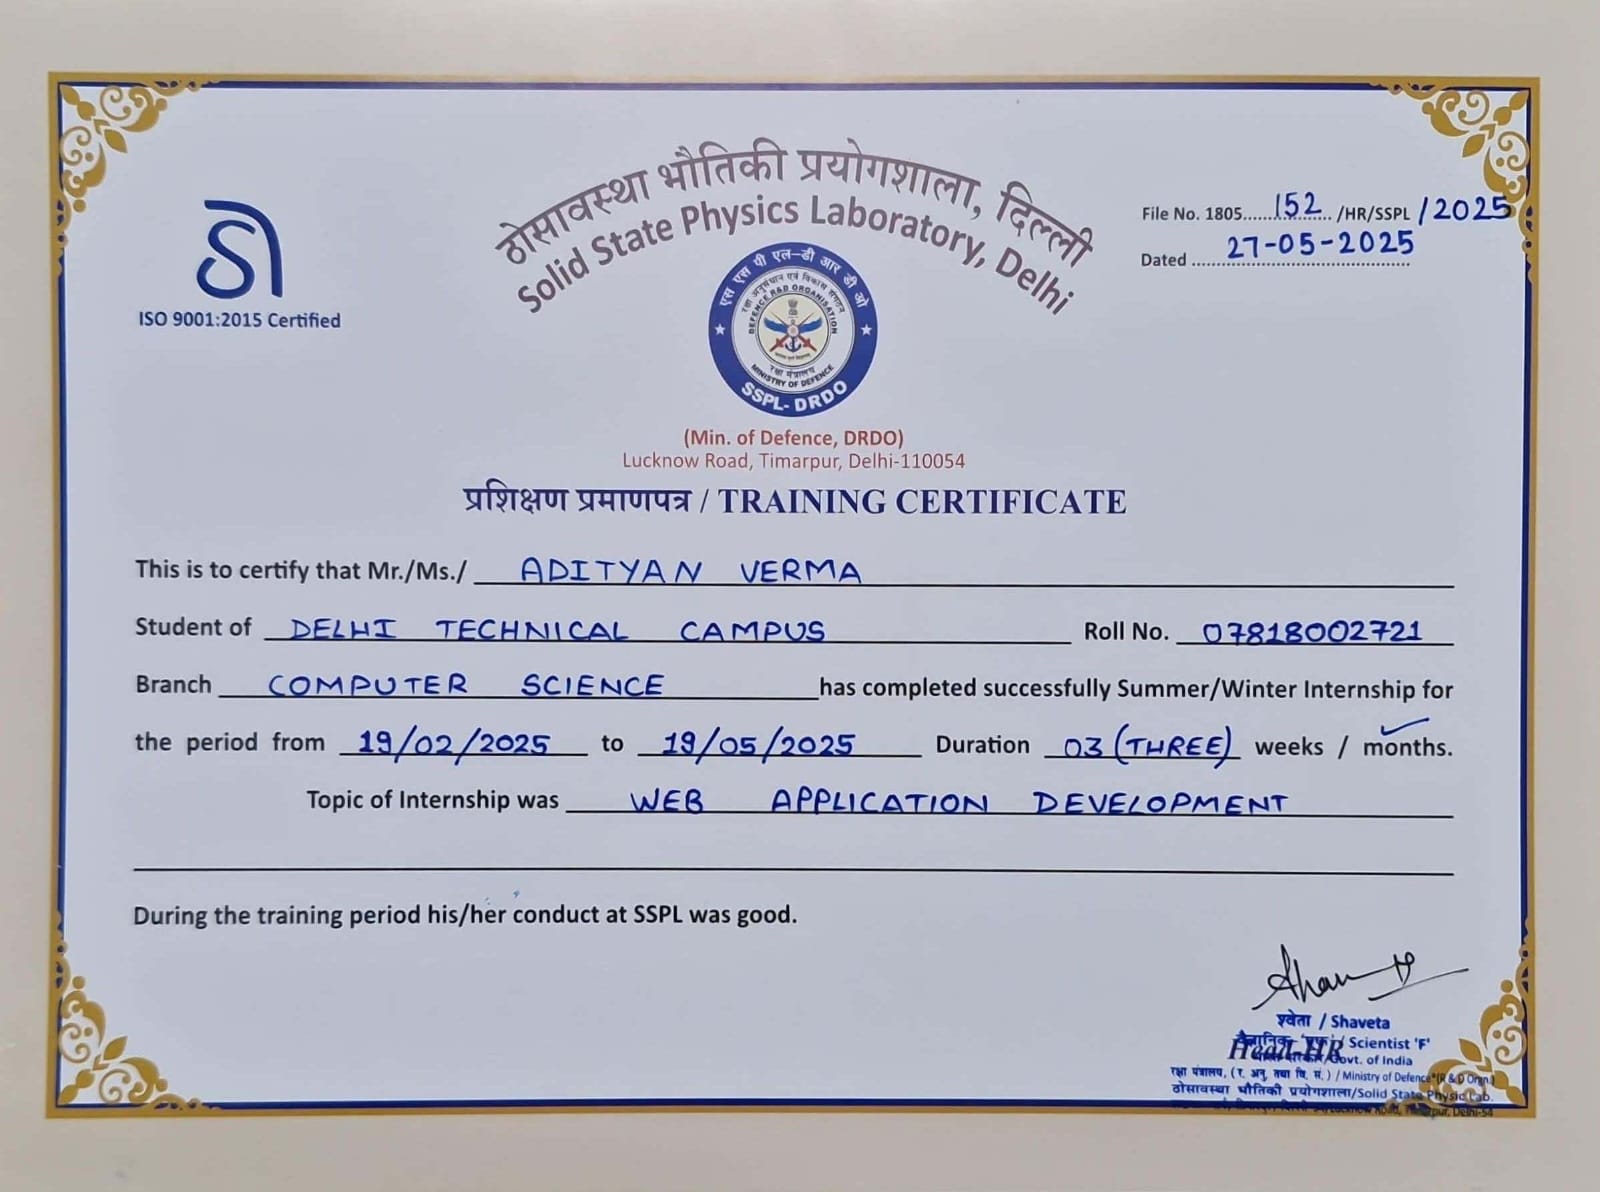 ठोसावस्था भौतिकी प्रयोगशाला, दिल्ली
Solid State Physics Laboratory, Delhi
File No. 1805......152.. /HR/SSPL /2025
Dated ....27-05-2025....
ISO 9001:2015 Certified
एस एस पी एल-डी आर डी ओ
रक्षा अनुसंधान एवं विकास संगठन
DEFENCE R&D ORGANISATION
रक्षा मंत्रालय
MINISTRY OF DEFENCE
SSPL- DRDO
(Min. of Defence, DRDO)
Lucknow Road, Timarpur, Delhi-110054
प्रशिक्षण प्रमाणपत्र / TRAINING CERTIFICATE
This is to certify that Mr./Ms./ ADITYAN VERMA
Student of DELHI TECHNICAL CAMPUS Roll No. 07818002721
Branch COMPUTER SCIENCE has completed successfully Summer/Winter Internship for
the period from 19/02/2025 to 19/05/2025 Duration 03 (THREE) weeks / months.
Topic of Internship was WEB APPLICATION DEVELOPMENT
During the training period his/her conduct at SSPL was good.
श्वेता / Shaveta
वैज्ञानिक- 'एफ' / Scientist 'F'
Head-HR
/Govt. of India
रक्षा मंत्रालय, (र. अनु. तथा वि. सं.) / Ministry of Defence (R & D Orgn.)
ठोसावस्था भौतिकी प्रयोगशाला/Solid State Physic Lab.
/Lucknow Road, Timarpur, Delhi-54